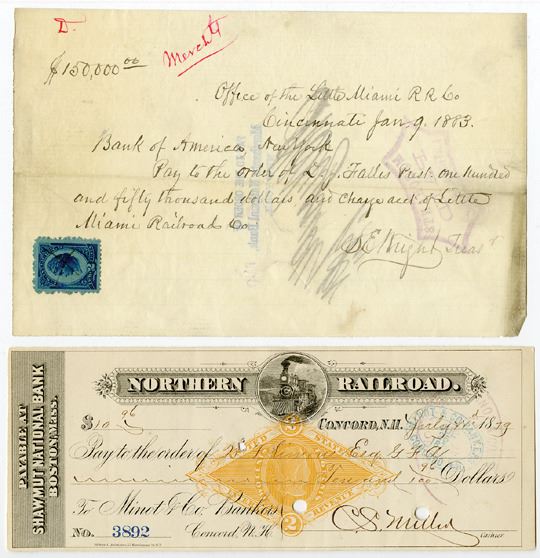 D.
Mercht
$150,000 00
Office of the Little Miami R R Co
Cincinnati Jan 9. 1883.
Bank of America, New York
Pay to the order of L. J. Fallis Prest. one hundred
and fifty thousand dollars, and charge acct of Little
Miami Railroad Co.
S E Wright Treas
PAYABLE AT
SHAWMUT NATIONAL BANK
BOSTON, MASS.
NORTHERN RAILROAD.
$10 96 CONCORD, N.H. July 1879
Pay to the order of Esq G. F. A.
Ten and 96/100 Dollars
UNITED STATES
REVENUE
2
To Minot & Co. Bankers
No. 3892 Concord, N. H. Cashier